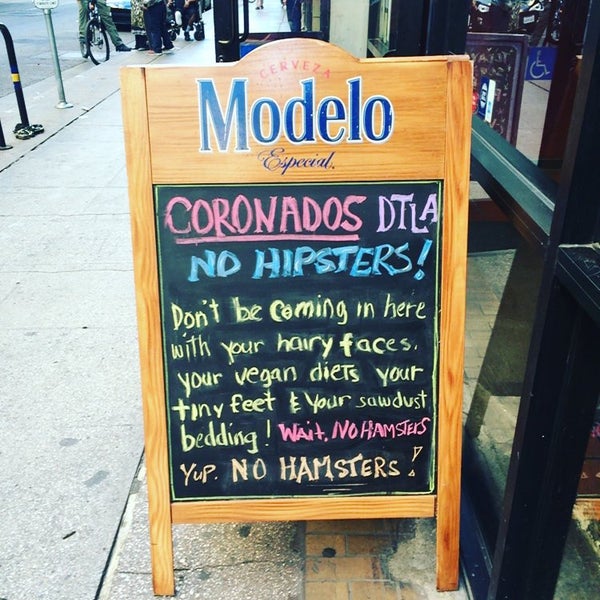 CERVEZA
Modelo
Especial.
CORONADOS DTLA
NO HIPSTERS!
Don't be coming in here
with your hairy faces.
your vegan diets your
tiny feet & your sawdust
bedding! Wait, NO HAMSTERS
YuP. NO HAMSTERS!